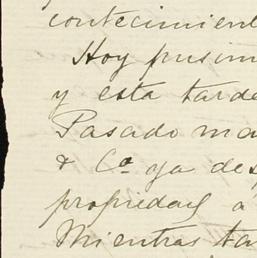 contecimient
Hoy pusim
y esta tarde
Pasado ma
& Cª ya des
propiedad a
Mientras ta